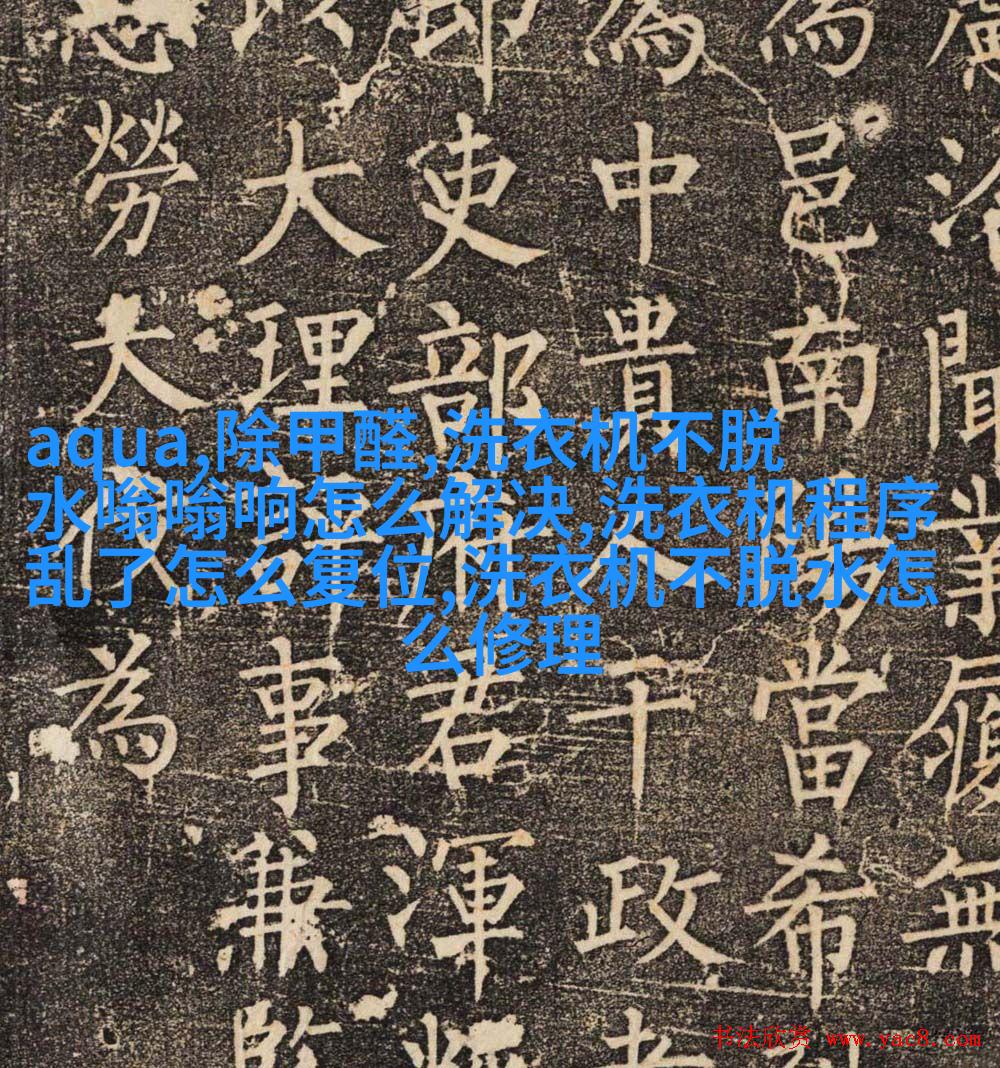 aqua,除甲醛,洗衣机不脱
水嗡嗡响怎么解决,洗衣机程序
乱了怎么复位,洗衣机不脱水怎
么修理
聞 業 無
為 邑 南 當 希
為 中 貴 人 干 政
郎 吏 部 若 渾
以 大 理 事 兼 監
勞 大 為
书法欣赏 www.yac8.com